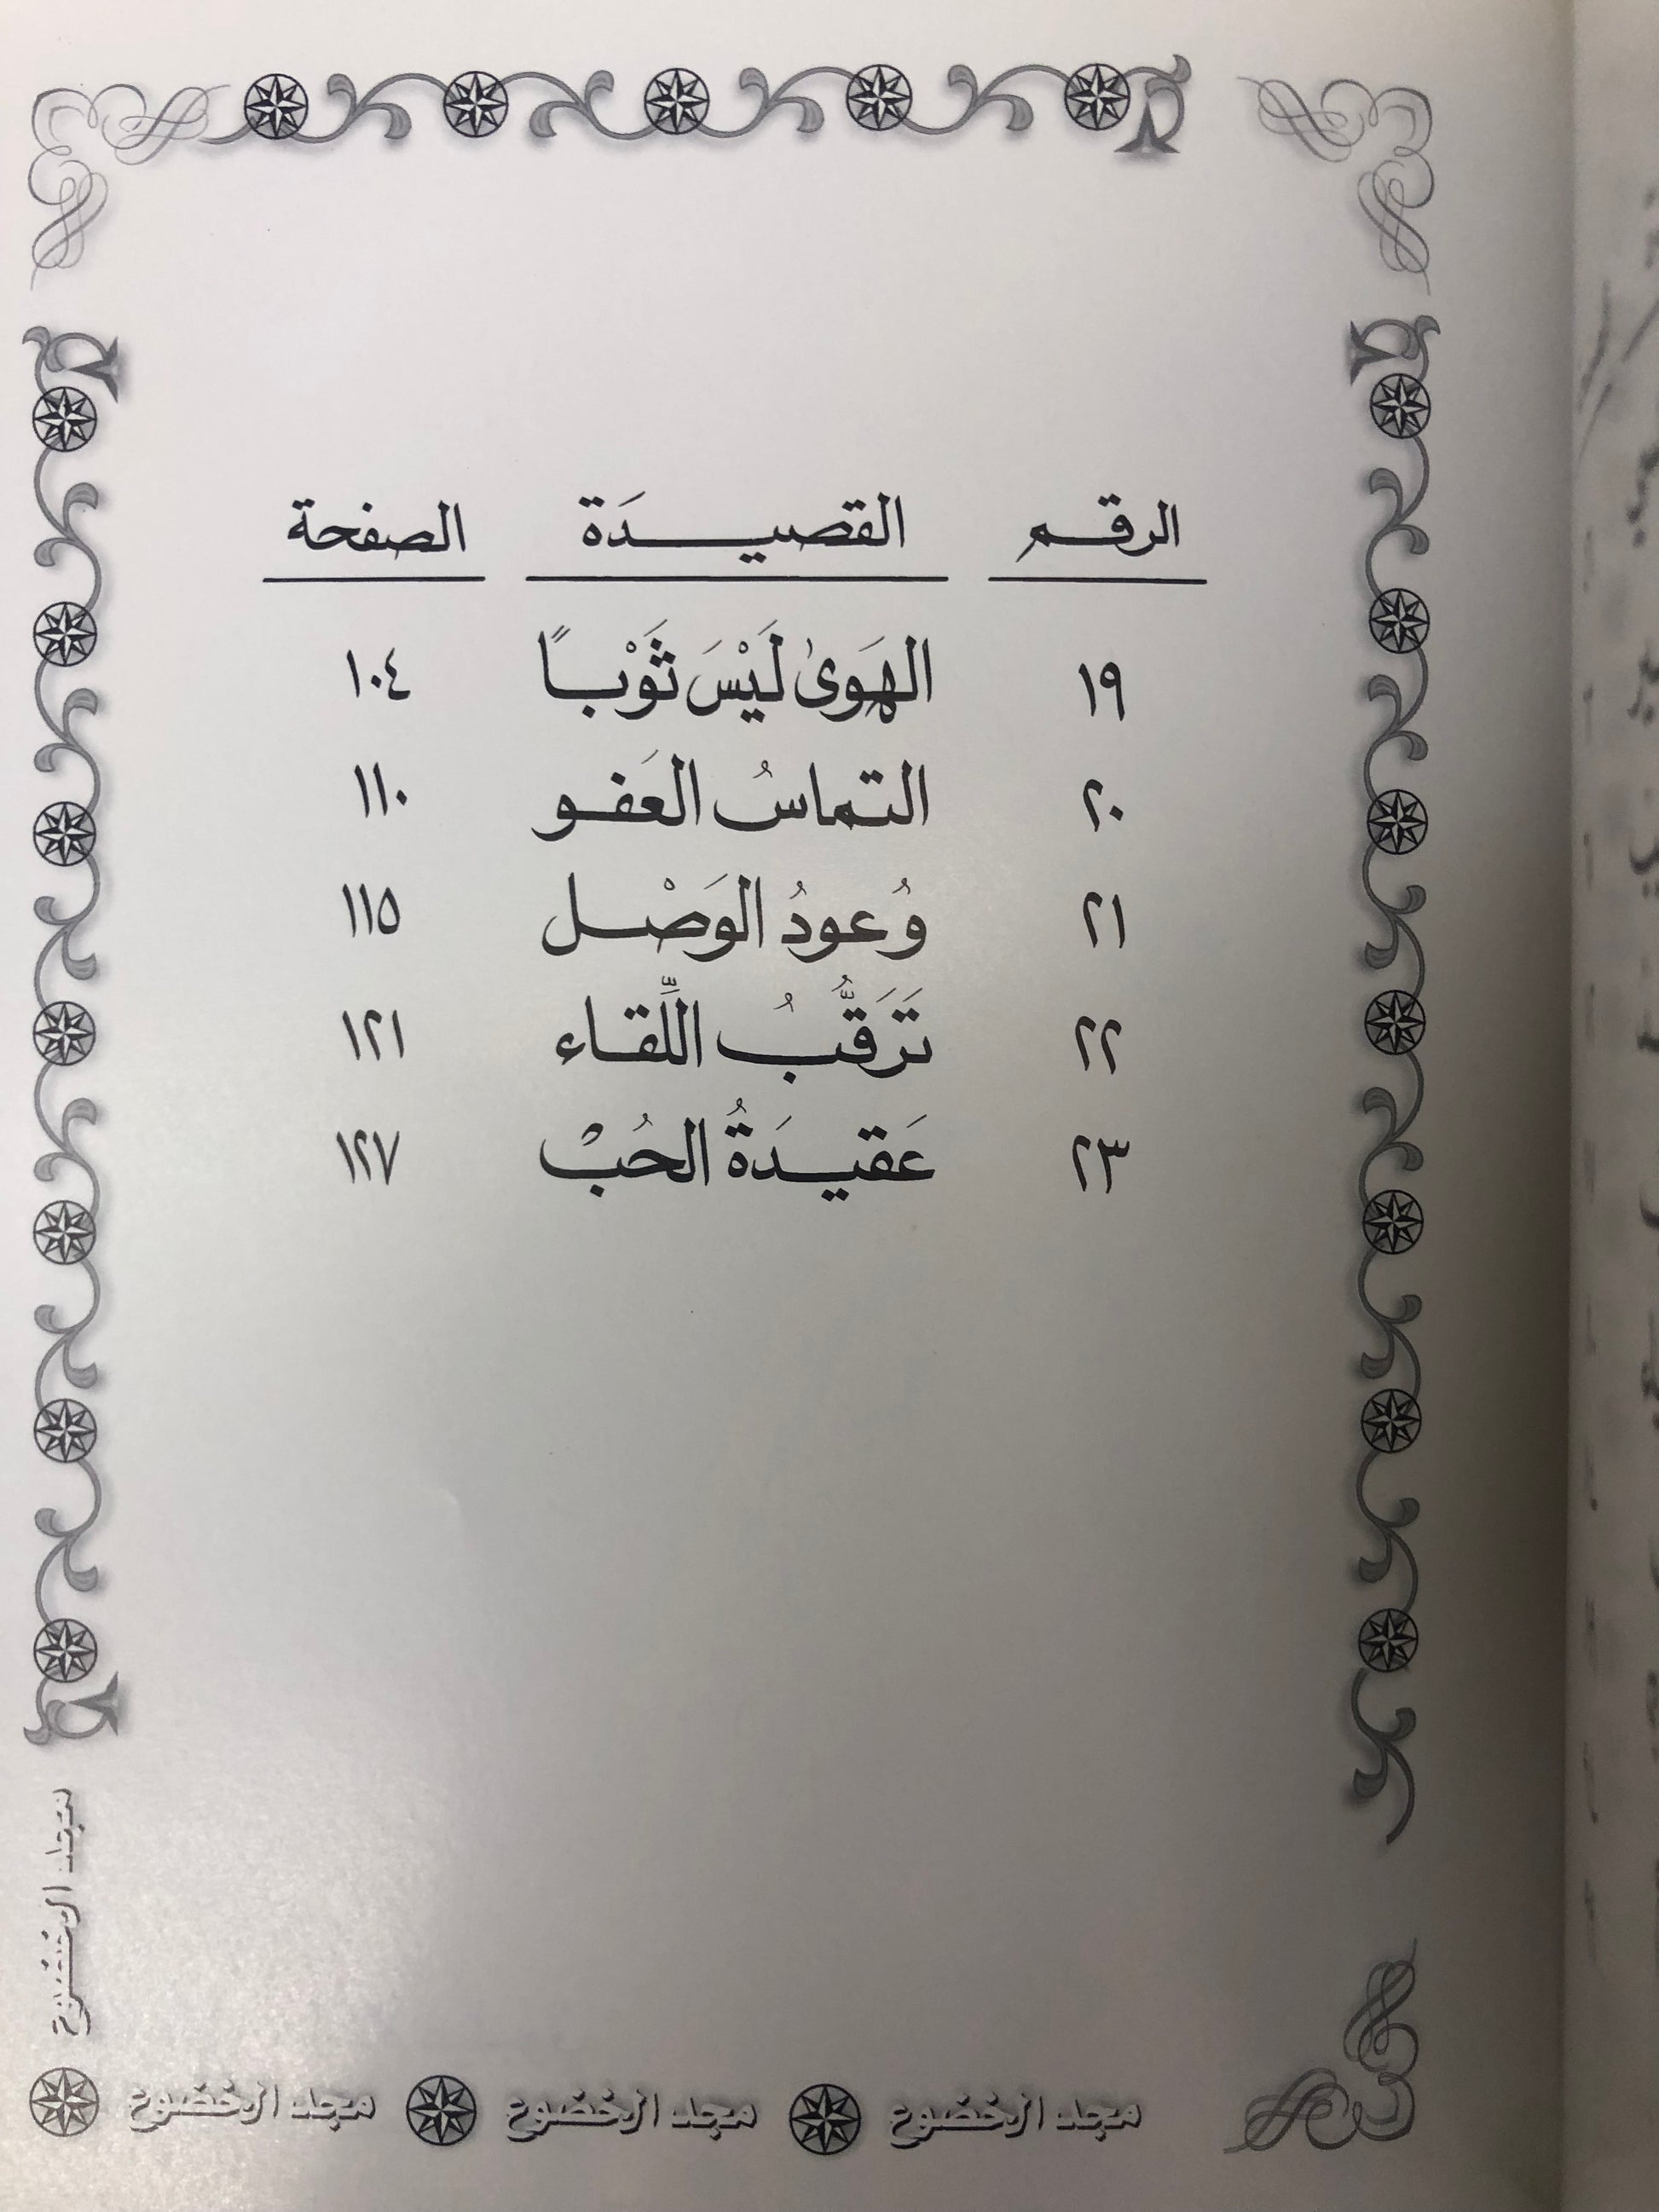 الرقم القصيدَة الصفحة
١٩ الهَوىٰ لَيْسَ ثَوْباً ١٠٤
٢٠ التماسُ العَفو ١١٠
٢١ وُعودُ الوَصْل ١١٥
٢٢ تَرَقُّبُ اللِّقاء ١٢١
٢٣ عَقيدَةُ الحُبْ ١٢٧
مجد الخضوع
مجد الخضوع مجد الخضوع مجد الخضوع